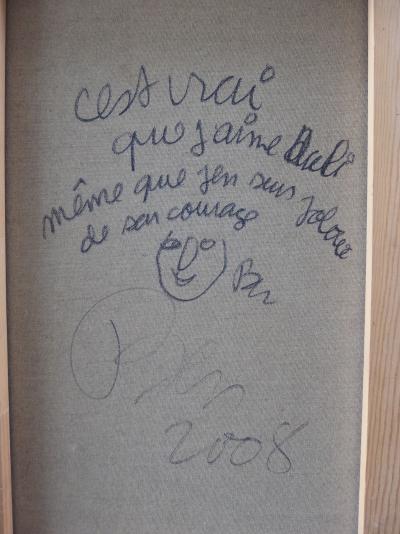 c'est vrai
que j'aime Dali
même que j'en suis jaloux
de son courage
Ben
Ben
2008